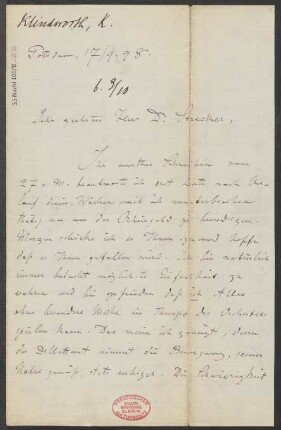 Klindworth, K.
Potsdam, 17/9.98.
b. 3/10
Sehr geehrter Herr Dr. Strecker,
Ihr werthes Schreiben vom
27 v. M. beantworte ich erst heute nach Ver-
lauf dreier Wochen weil ich ununterbrochen
thätig war um das Rheingold zu beendigen.
Morgen schicke ich es Ihnen zu und hoffe
daß es Ihnen gefallen wird. Ich bin natürlich
immer bedacht möglichste Einfachheit zu
wahren und bin zufrieden daß ich Alles
ohne besondere Mühe im Tempo des Orchesters
spielen kann. Das meine ich genügt, denn
der Dilettant nimmt die Bewegung, seiner
Natur gemäß, stets ruhiger. Die Schwierigkeit